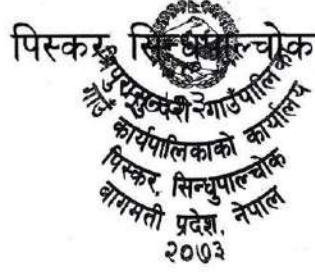 पिस्कर, सिन्धुपाल्चोक
गाउँपालिका
गाउँ कार्यपालिकाको कार्यालय
पिस्कर, सिन्धुपाल्चोक
बागमती प्रदेश, नेपाल
२०७३